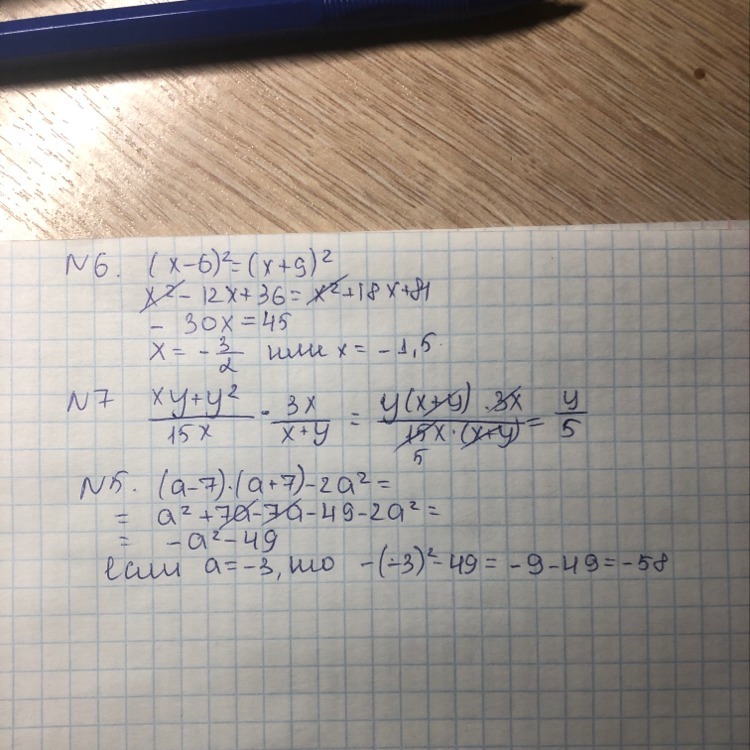 N6. (x-6)²=(x+9)²
x²-12x+36=x²+18x+81
- 30x=45
x= -3/2 или x= -1,5.
N7 (xy+y²)/(15x) · (3x)/(x+y) = (y(x+y)·3x)/(15x·(x+y)) = y/5
5
N5. (a-7)·(a+7)-2a²=
= a²+7a-7a-49-2a²=
= -a²-49
если a=-3, то -(-3)²-49=-9-49=-58